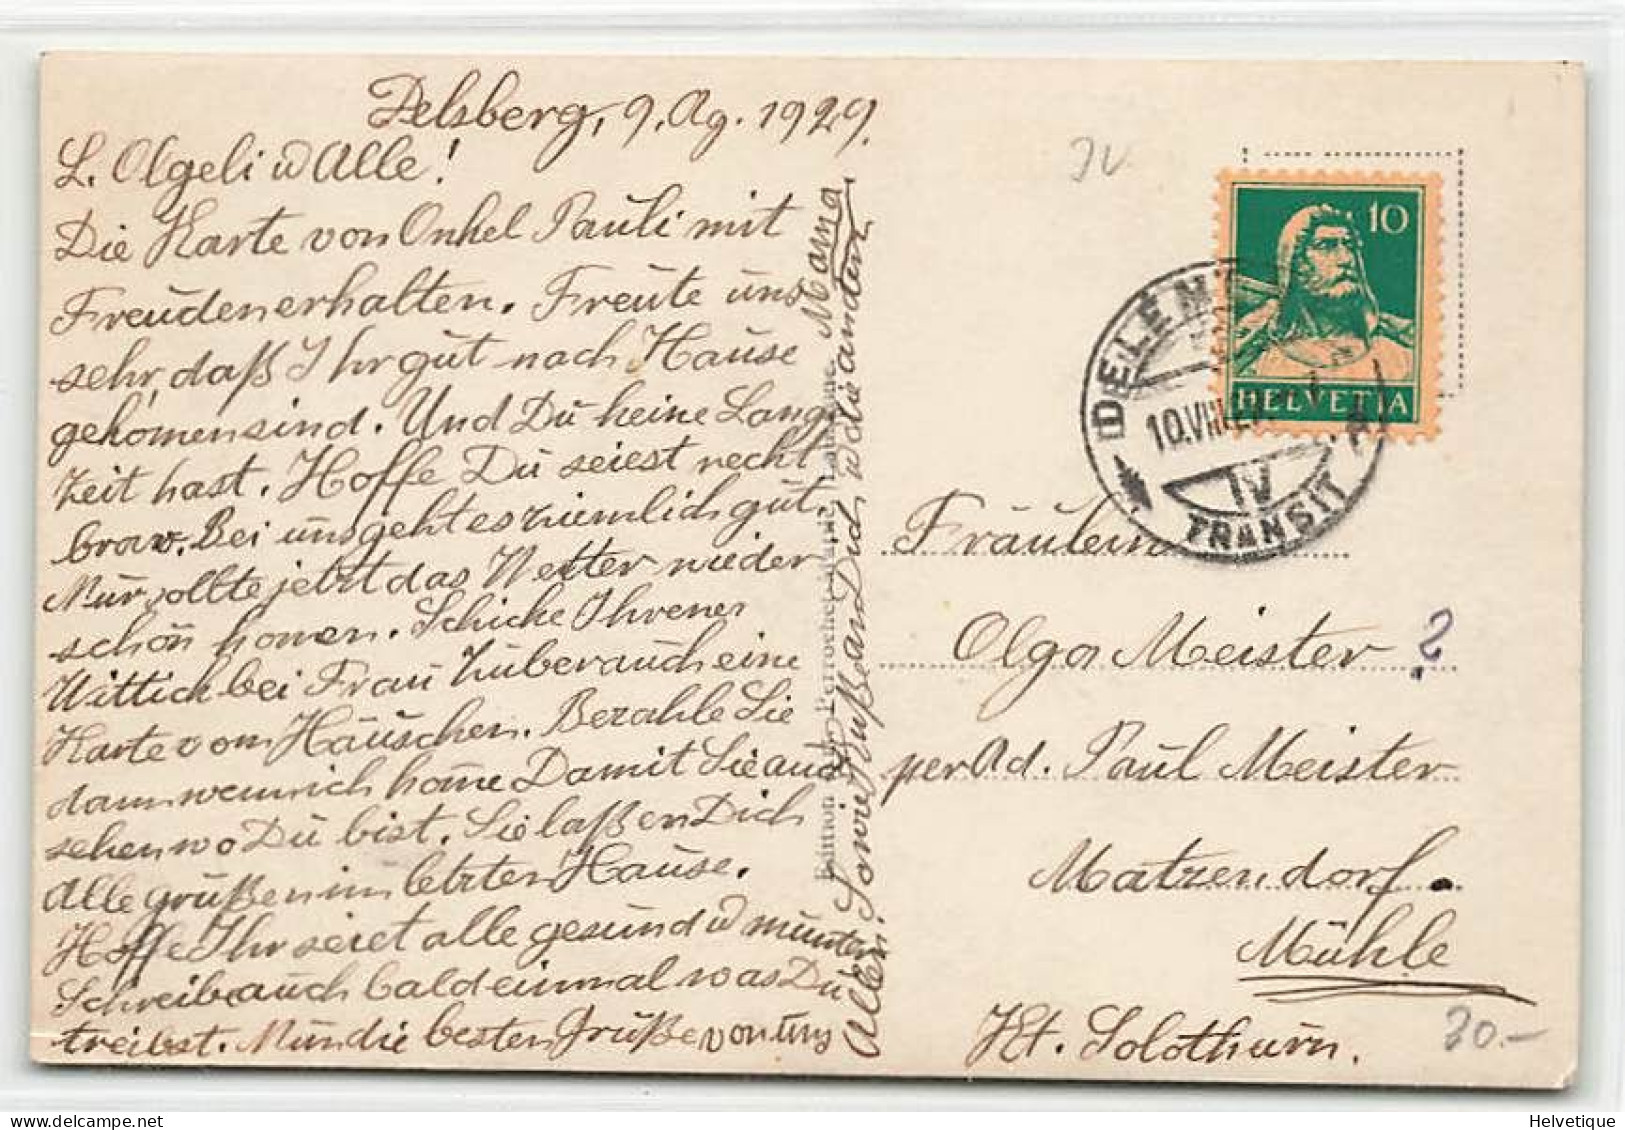 Delsberg, 9. Ag. 1929.
L. Olgeli u Alle!
Die Karte von Onkel Pauli mit
Freuden erhalten. Freute uns
sehr, daß Ihr gut nach Hause
gekomen sind. Und Du keine Lang
Zeit hast. Hoffe Du seiest recht
brav. Bei uns geht es ziemlich gut.
Nur sollte jetzt das Wetter wieder
schön komen. Schicke Ihnen
Wittich bei Frau Zuber auch eine
Karte vom Häuschen. Bezahle Sie
dann wenn ich kome Damit Sie auch
sehen wo Du bist. Sie laßen Dich
Alle grüßen im letzten Hause.
Hoffe Ihr seiet alle gesund u munter
Schreibe auch bald einmal was Du
treibst. Nun die besten Grüße von uns
Allen. Sowie Kuß an Dich u die andern
Mama
Edition Perrochet Lausanne
IV
10
HELVETIA
DELÉMONT
10.VIII.
IV
TRANSIT
Fräulein
Olga Meister ?
per Ad. Paul Meister
Matzendorf.
Mühle
Kt. Solothurn.
30.-
Helvetique